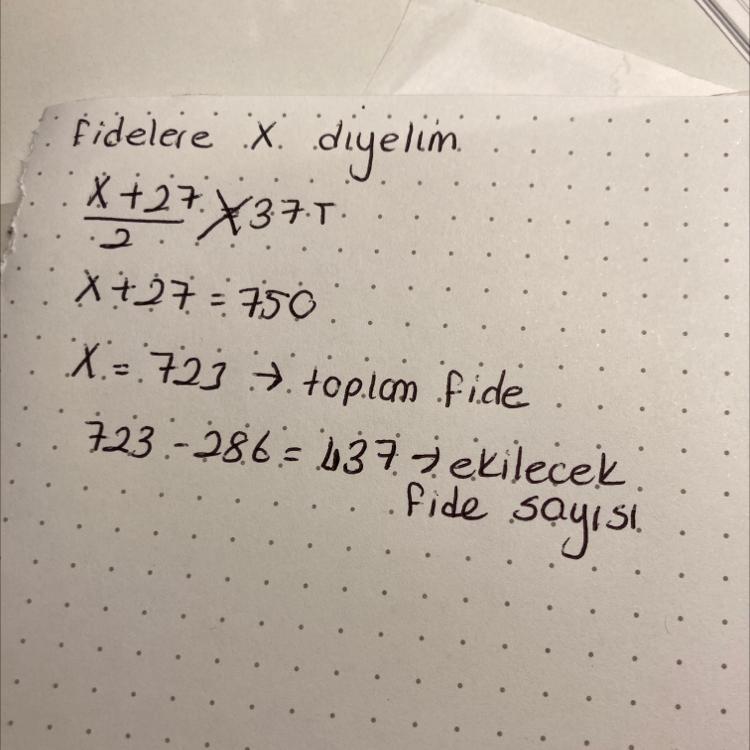 fidelere X diyelim
X+27/2 X 37T
X+27=750
X=723 → toplam fide
723-286=437 → ekilecek
fide sayısı